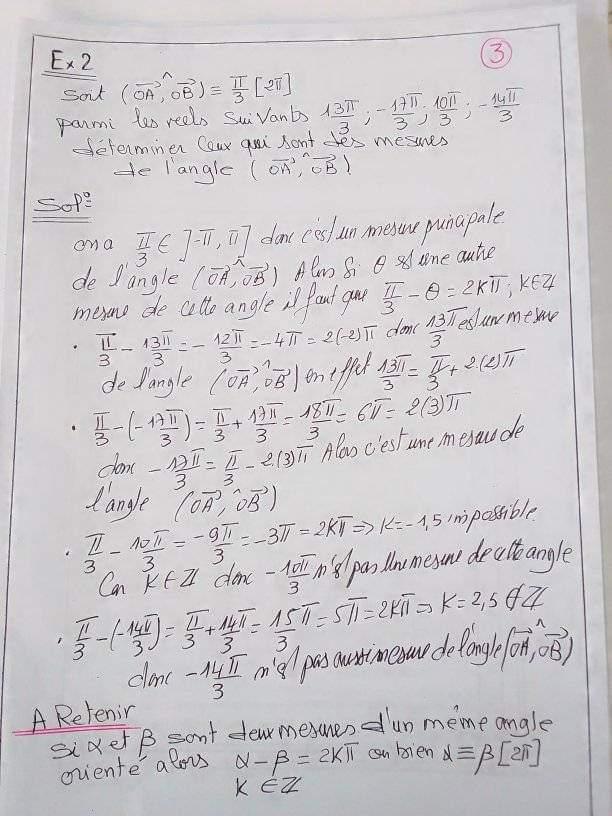 Ex 2
③
Soit (OA⃗, OB⃗)^ ≡ π/3 [2π]
parmi les réels suivants 13π/3 ; -17π/3 ; 10π/3 ; -14π/3
déterminer ceux qui sont des mesures
de l'angle (OA⃗, OB⃗)^
Sol°:
on a π/3 ∈ ]-π, π] donc c'est un mesure principale
de l'angle (OA⃗, OB⃗)^ Alors Si θ est une autre
mesure de cette angle il faut que π/3 - θ = 2Kπ ; K∈Z
• π/3 - 13π/3 = -12π/3 = -4π = 2(-2)π donc 13π/3 est une mesure
de l'angle (OA⃗, OB⃗)^ en effet 13π/3 = π/3 + 2(2)π
• π/3 - (-17π/3) = π/3 + 17π/3 = 18π/3 = 6π = 2(3)π
donc -17π/3 = π/3 - 2(3)π Alors c'est une mesure de
l'angle (OA⃗, OB⃗)^
• π/3 - 10π/3 = -9π/3 = -3π = 2Kπ ⇒ K = -1,5 impossible.
Car K∈Z donc -10π/3 n'est pas une mesure de cette angle
• π/3 - (-14π/3) = π/3 + 14π/3 = 15π/3 = 5π = 2Kπ ⇒ K = 2,5 ∉ Z
donc -14π/3 n'est pas aussi mesure de l'angle (OA⃗, OB⃗)^
A Retenir
Si α et β sont deux mesures d'un même angle
orienté alors α - β = 2Kπ ou bien α ≡ β [2π]
K ∈ Z